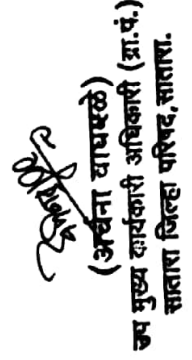 (अर्चना वाघमळे)
उप मुख्य कार्यकारी अधिकारी (ग्रा.पं.)
सातारा जिल्हा परिषद, सातारा.